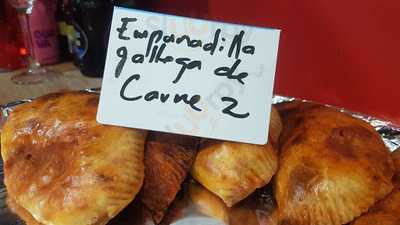 Empanadilla
gallega de
Carne 2